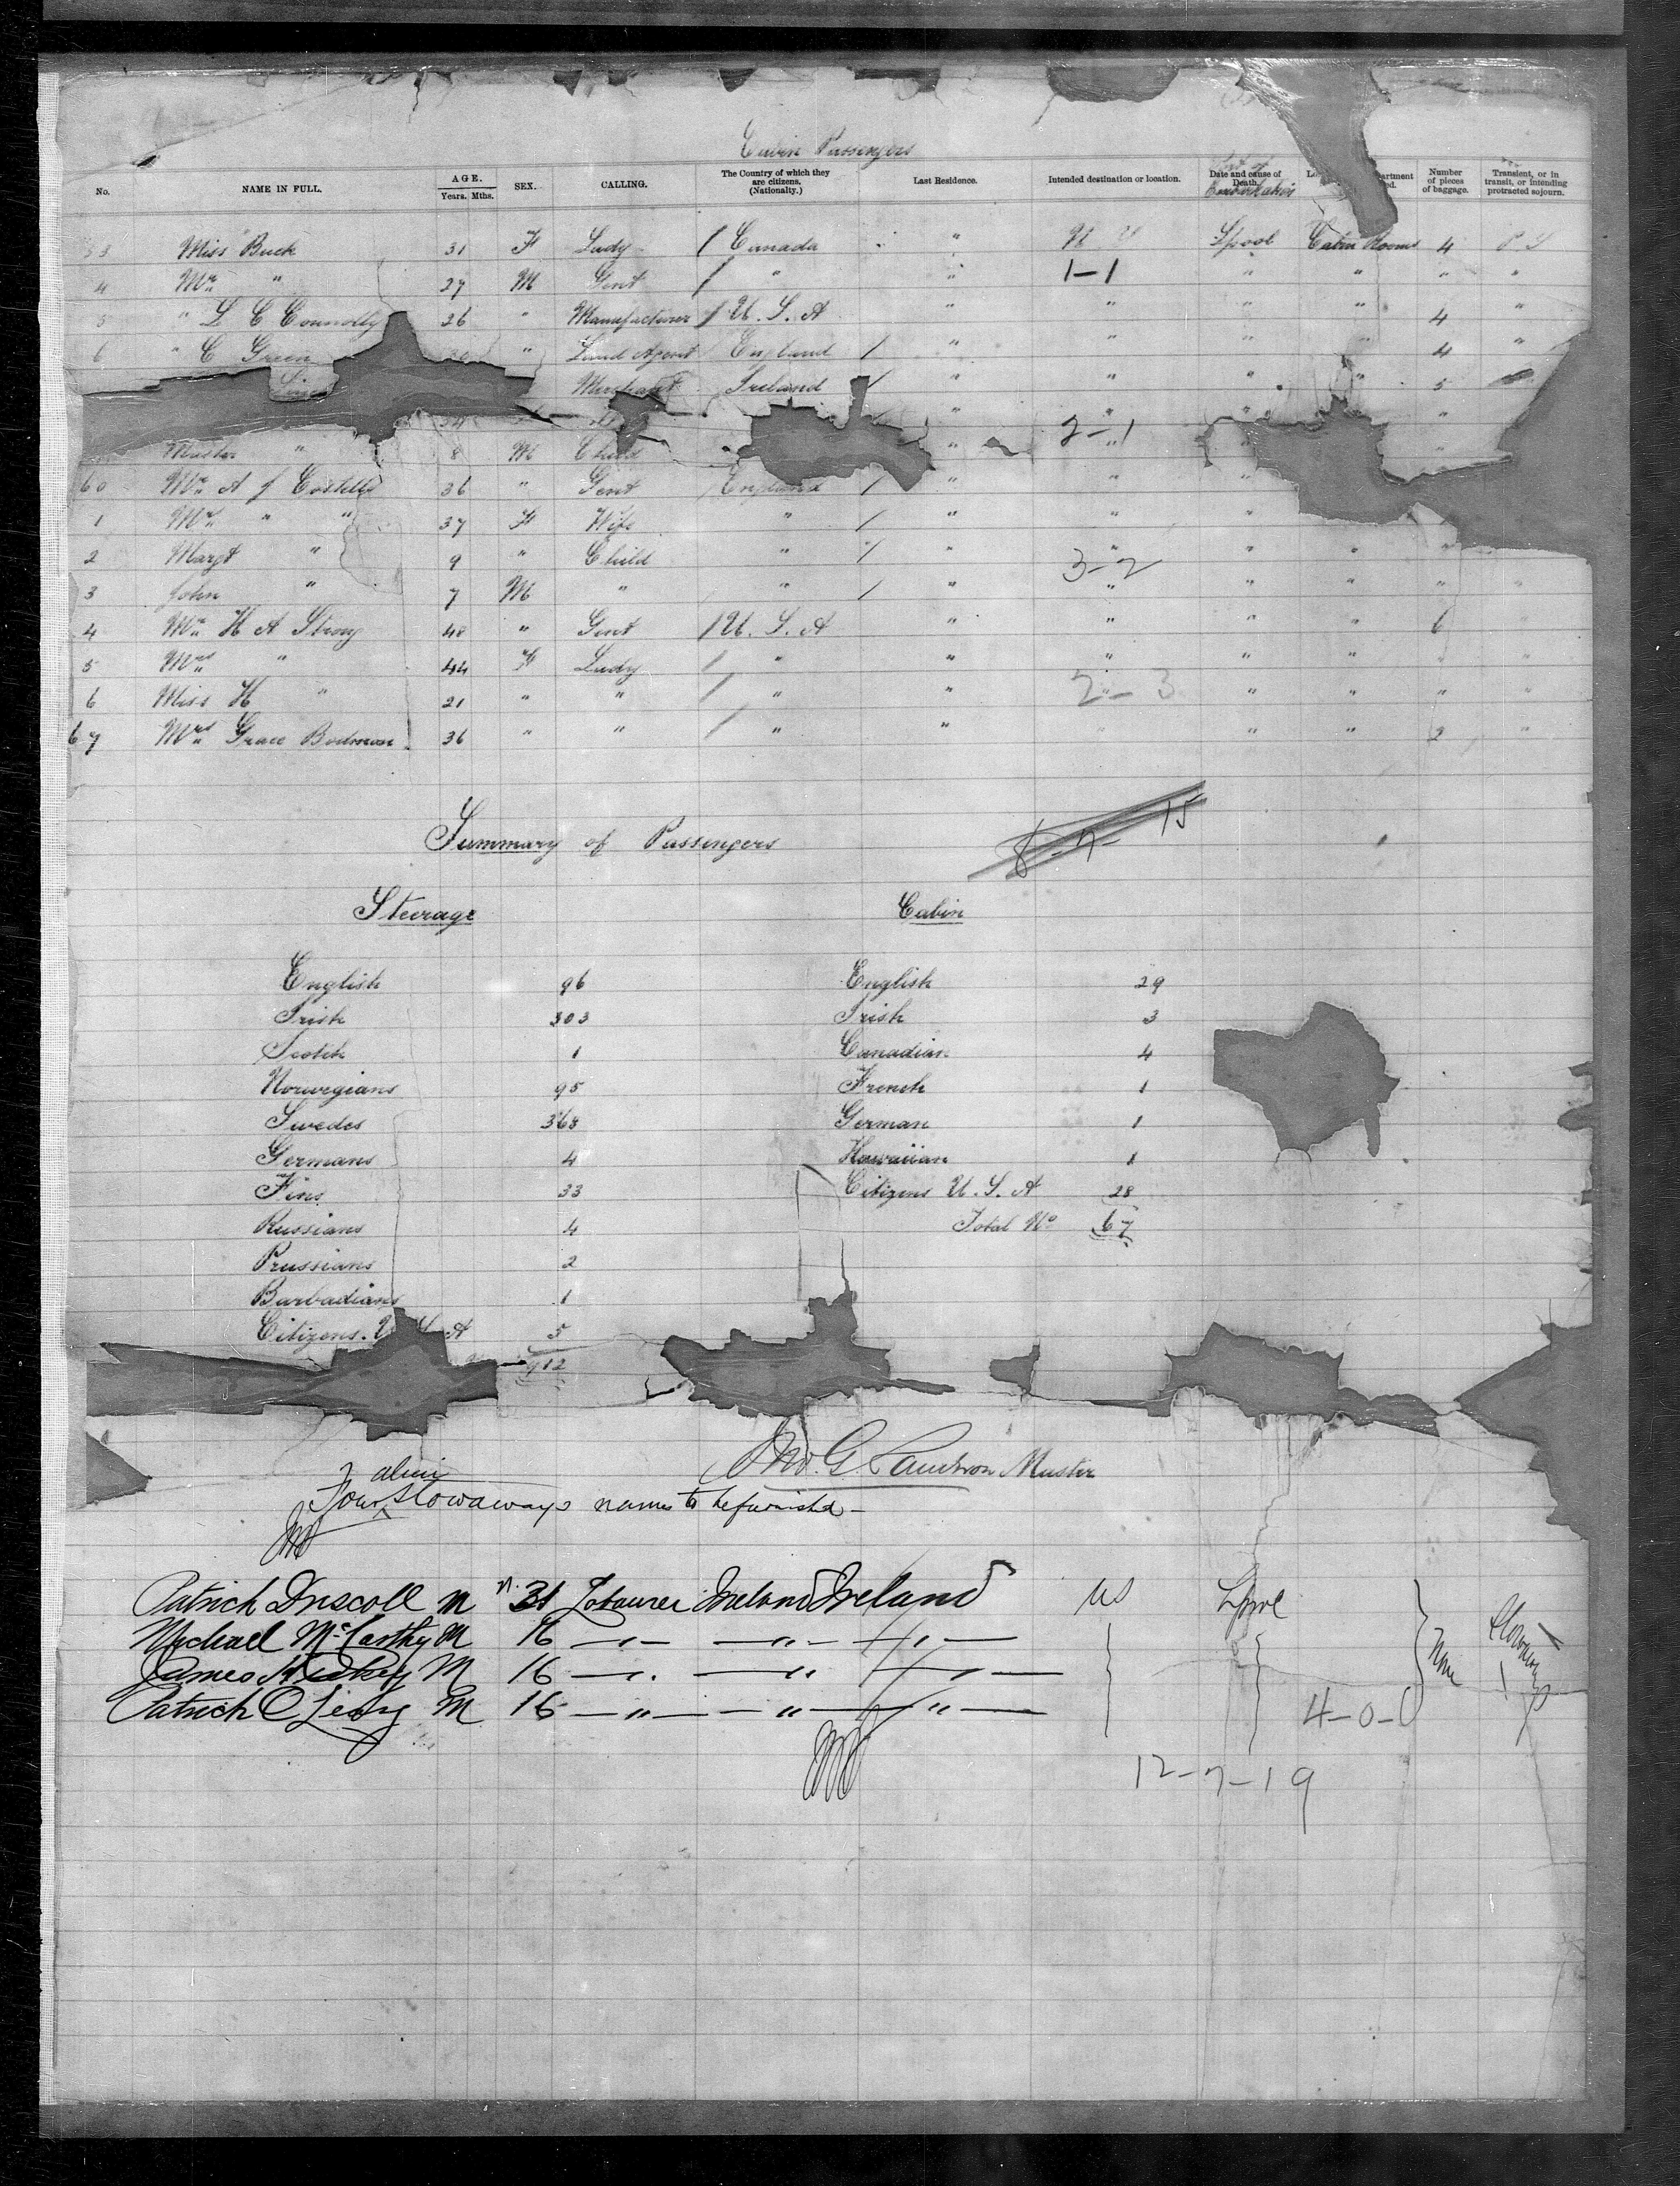 Cabin Passengers
No. NAME IN FULL. AGE. Years. Mths. SEX. CALLING. The Country of which they are citizens. (Nationality.) Last Residence. Intended destination or location. Date and cause of Death. Port of Embarkation Number of pieces of baggage. Transient, or in transit, or intending protracted sojourn.
Miss Buck 31 F Lady / Canada " " N Y L'pool Cabin Rooms 4 P S
4 Mr " 27 M Gent / " " 1-1 " " " "
5 " L C Connolly 36 " Manufacturer / U. S. A " " " " 4 "
6 " C Green " Land Agent England / " " " " 4 "
Merchant Ireland / " " " " 5
34 " " " "
Master " 8 M Child " 2-1 " "
60 Mr A J Costello 36 " Gent England / " " "
1 Mrs " " 37 F Wife " / " " "
2 Margt " 9 " Child " / " " " " "
3 John " 7 M " " / " 3-2 " " " " "
4 Mr H A Strong 48 " Gent / U. S. A " " " " 6
5 Mrs " 44 F Lady / " " " " " " "
6 Miss H " 21 " " / " " 2-3 " " " " "
67 Mrs Grace Bodman 36 " " / " " " " " 2 "
Summary of Passengers 8-7-15
Steerage Cabin
English 96 English 29
Irish 303 Irish 3
Scotch 1 Canadian 4
Norwegians 95 French 1
Swedes 368 German 1
Germans 4 Hawaiian 1
Fins 33 Citizens U. S. A 28
Russians 4 Total No 67
Prussians 2
Barbadians 1
Citizens. U S A 5
912
Jno. G. Master
alien
Four ^ Stowaways names to be furnished -
Patrick Driscoll M 21 Labourer Ireland Ireland US L'pool
Michael McCarthy M 16 " " " None Stowaways
James M 16 " " "
Patrick O'Leary M 16 " " " 4-0-0
12-7-19